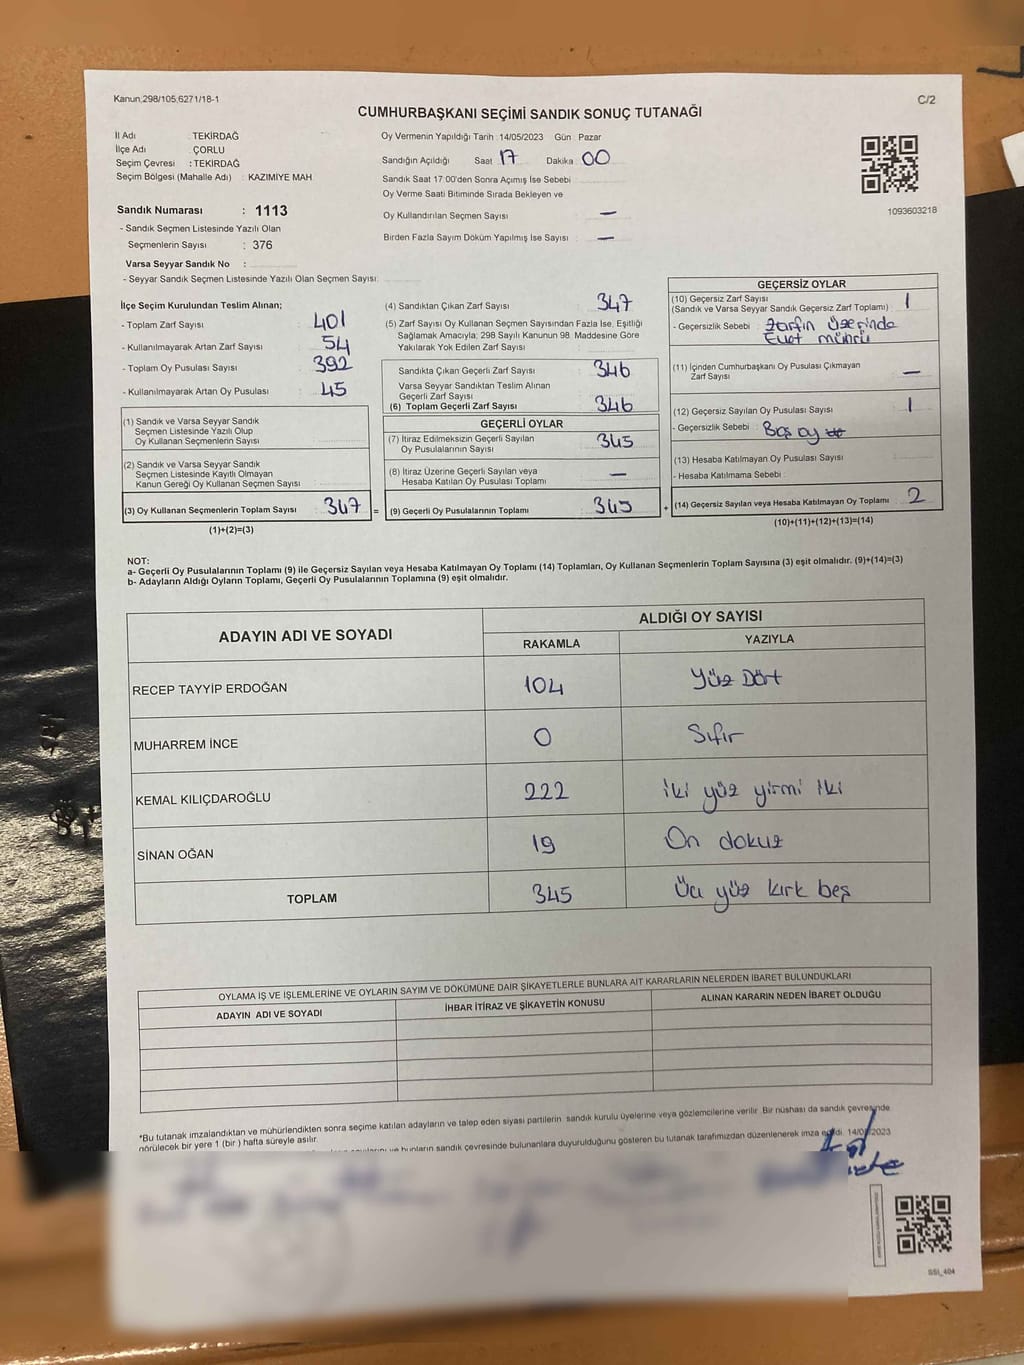 Kanun,298/105,6271/18-1
C/2
CUMHURBAŞKANI SEÇİMİ SANDIK SONUÇ TUTANAĞI
İl Adı : TEKİRDAĞ
İlçe Adı : ÇORLU
Seçim Çevresi : TEKİRDAĞ
Seçim Bölgesi (Mahalle Adı) : KAZIMİYE MAH
Sandık Numarası : 1113
- Sandık Seçmen Listesinde Yazılı Olan
Seçmenlerin Sayısı : 376
Varsa Seyyar Sandık No :
- Seyyar Sandık Seçmen Listesinde Yazılı Olan Seçmen Sayısı:
Oy Vermenin Yapıldığı Tarih :14/05/2023 Gün : Pazar
Sandığın Açıldığı Saat 17 Dakika 00
Sandık Saat 17:00'den Sonra Açımış İse Sebebi
Oy Verme Saati Bitiminde Sırada Bekleyen ve
Oy Kullandırılan Seçmen Sayısı : —
Birden Fazla Sayım Döküm Yapılmış İse Sayısı : —
1093603218
İlçe Seçim Kurulundan Teslim Alınan;
- Toplam Zarf Sayısı : 401
- Kullanılmayarak Artan Zarf Sayısı : 54
- Toplam Oy Pusulası Sayısı : 392
- Kullanılmayarak Artan Oy Pusulası : 45
(1) Sandık ve Varsa Seyyar Sandık
Seçmen Listesinde Yazılı Olup
Oy Kullanan Seçmenlerin Sayısı :
(2) Sandık ve Varsa Seyyar Sandık
Seçmen Listesinde Kayıtlı Olmayan
Kanun Gereği Oy Kullanan Seçmen Sayısı :
(3) Oy Kullanan Seçmenlerin Toplam Sayısı : 347 =
(1)+(2)=(3)
(4) Sandıktan Çıkan Zarf Sayısı : 347
(5) Zarf Sayısı Oy Kullanan Seçmen Sayısından Fazla İse, Eşitliği
Sağlamak Amacıyla; 298 Sayılı Kanunun 98. Maddesine Göre
Yakılarak Yok Edilen Zarf Sayısı :
Sandıkta Çıkan Geçerli Zarf Sayısı : 346
Varsa Seyyar Sandıktan Teslim Alınan
Geçerli Zarf Sayısı :
(6) Toplam Geçerli Zarf Sayısı : 346
GEÇERLİ OYLAR
(7) İtiraz Edilmeksizin Geçerli Sayılan
Oy Pusulalarının Sayısı : 345
(8) İtiraz Üzerine Geçerli Sayılan veya
Hesaba Katılan Oy Pusulası Toplamı : —
(9) Geçerli Oy Pusulalarının Toplamı : 345 +
GEÇERSİZ OYLAR
(10) Geçersiz Zarf Sayısı
(Sandık ve Varsa Seyyar Sandık Geçersiz Zarf Toplamı) : 1
- Geçersizlik Sebebi : Zarfın Üzerinde
Evet mührü
(11) İçinden Cumhurbaşkanı Oy Pusulası Çıkmayan
Zarf Sayısı : —
(12) Geçersiz Sayılan Oy Pusulası Sayısı : 1
- Geçersizlik Sebebi : Boş oy
(13) Hesaba Katılmayan Oy Pusulası Sayısı :
- Hesaba Katılmama Sebebi :
(14) Geçersiz Sayılan veya Hesaba Katılmayan Oy Toplamı : 2
(10)+(11)+(12)+(13)=(14)
NOT:
a- Geçerli Oy Pusulalarının Toplamı (9) ile Geçersiz Sayılan veya Hesaba Katılmayan Oy Toplamı (14) Toplamları, Oy Kullanan Seçmenlerin Toplam Sayısına (3) eşit olmalıdır. (9)+(14)=(3)
b- Adayların Aldığı Oyların Toplamı, Geçerli Oy Pusulalarının Toplamına (9) eşit olmalıdır.
ADAYIN ADI VE SOYADI
ALDIĞI OY SAYISI
RAKAMLA YAZIYLA
RECEP TAYYİP ERDOĞAN 104 Yüz Dört
MUHARREM İNCE 0 Sıfır
KEMAL KILIÇDAROĞLU 222 iki yüz yirmi iki
SİNAN OĞAN 19 On dokuz
TOPLAM 345 Üç yüz kırk beş
OYLAMA İŞ VE İŞLEMLERİNE VE OYLARIN SAYIM VE DÖKÜMÜNE DAİR ŞİKAYETLERLE BUNLARA AİT KARARLARIN NELERDEN İBARET BULUNDUKLARI
ADAYIN ADI VE SOYADI İHBAR İTİRAZ VE ŞİKAYETİN KONUSU ALINAN KARARIN NEDEN İBARET OLDUĞU
*Bu tutanak imzalandıktan ve mühürlendikten sonra seçime katılan adayların ve talep eden siyasi partilerin sandık kurulu üyelerine veya gözlemcilerine verilir. Bir nüshası da sandık çevresinde
görülecek bir yere 1 (bir) hafta süreyle asılır.
bunların sandık çevresinde bulunanlara duyurulduğunu gösteren bu tutanak tarafımızdan düzenlenerek imza edildi. 14/05/2023
SSİ_404